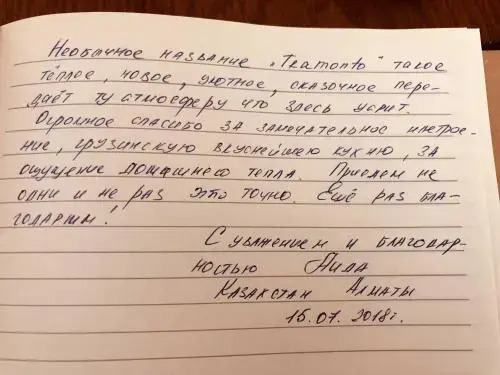 Необычное название „Tramonto" такое
тёплое, новое, уютное, сказочное пере-
даёт ту атмосферу что здесь царит.
Огромное спасибо за замечательное настрое-
ние, грузинскую вкуснейшею кухню, за
ощущение домашнего тепла. Приедем не
одни и не раз это точно. Ещё раз бла-
годарим!
С уважением и благодар-
ностью Аида
Казакстан Алматы
15.07.2018г.